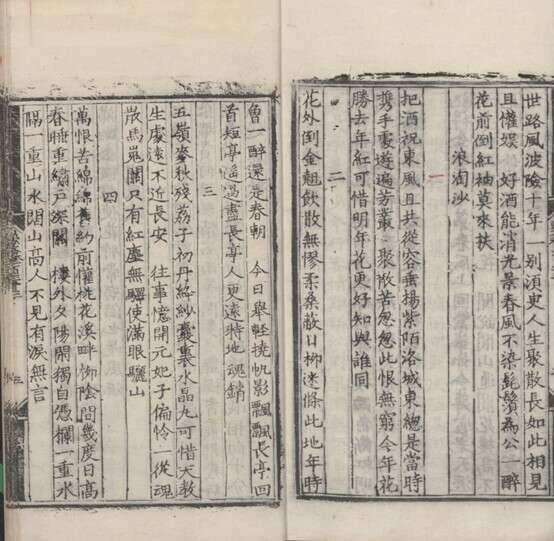 世路風波險十年一別須臾人生聚散長如此相見
且懽娛　好酒能消光景春風不染髭鬚為公一醉
花前倒紅袖莫來扶
浪淘沙
一
把酒祝東風且共從容垂楊紫陌洛城東總是當時
攜手處遊遍芳叢　聚散苦怱怱此恨無窮今年花
勝去年紅可惜明年花更好知與誰同
二
花外倒金翹飲散無憀柔桑蔽日柳迷條此地年時
曾一醉還是春朝　今日舉輕橈帆影飄飄長亭回
首短亭遙過盡長亭人更遠特地魂銷
三
五嶺麥秋殘荔子初丹絳紗囊裏水晶丸可惜天教
生處遠不近長安　往事憶開元妃子偏憐一從魂
散馬嵬關只有紅塵無驛使滿眼驪山
四
萬恨苦綿綿舊約前懽桃花溪畔柳陰間幾度日高
春睡重繡戶深關　樓外夕陽閑獨自憑欄一重水
隔一重山水闊山高人不見有淚無言